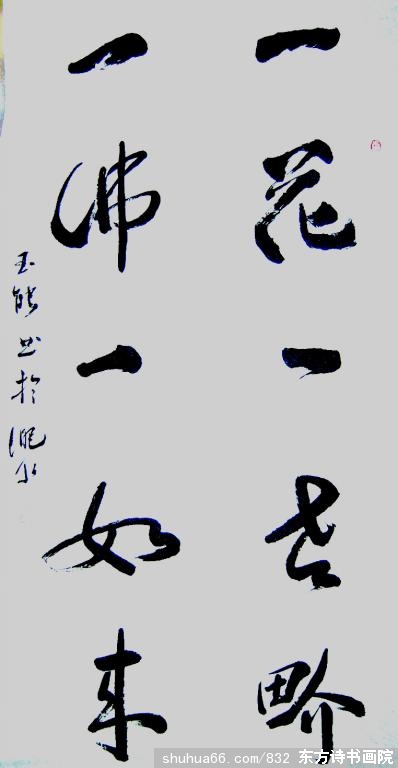 一花一世界
一佛一如来
玉能书於淝水
shuhua66.com/832 东方诗书画院